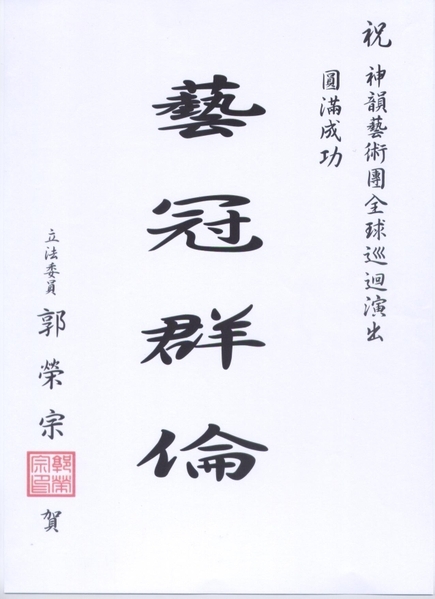 祝 神韻藝術團全球巡迴演出
圓滿成功
藝冠群倫
立法委員 郭榮宗 賀
郭榮宗印